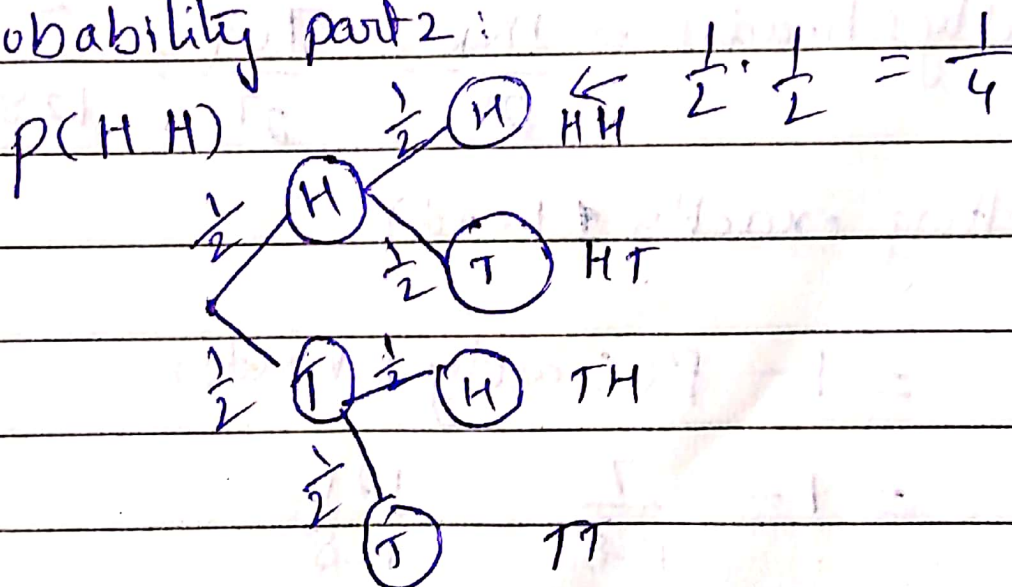 obability part 2:
P(H H) 1/2 H ← HH 1/2 · 1/2 = 1/4
1/2 H
1/2 T HT
1/2 T 1/2 H TH
1/2 T TT